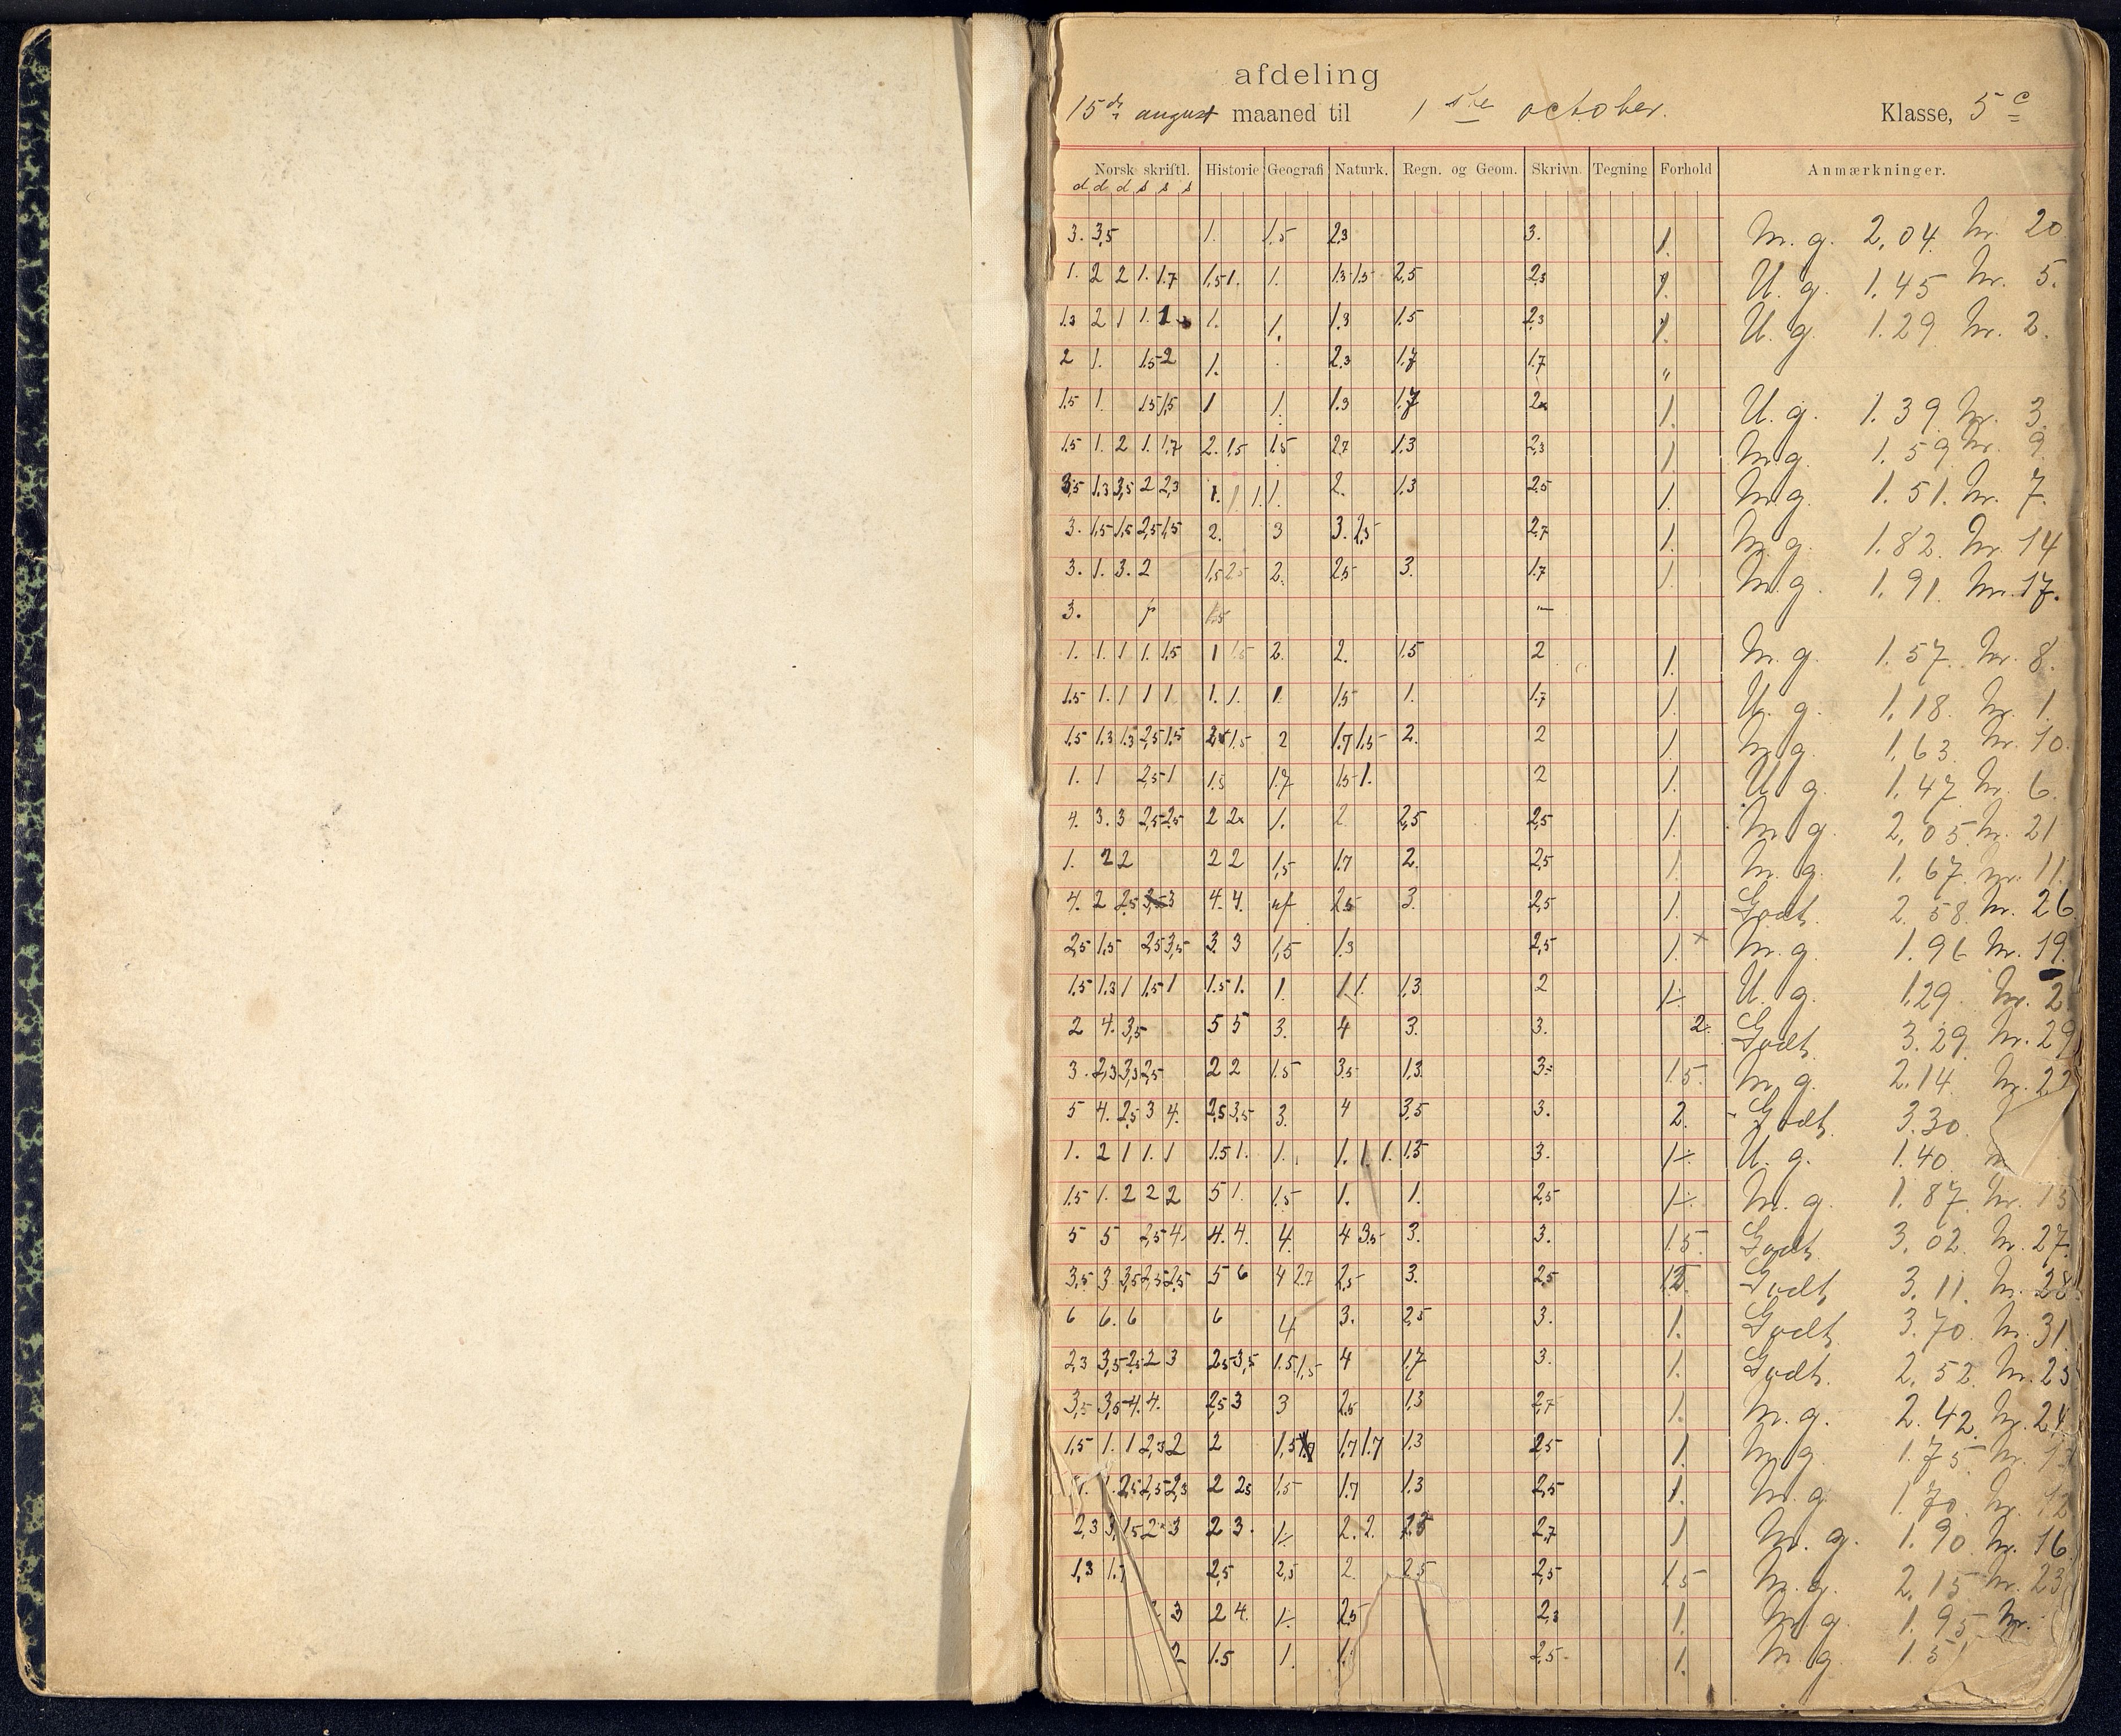 afdeling
15de august maaned til 1ste october. Klasse, 5c
Norsk skriftl. Historie Geografi Naturk. Regn. og Geom. Skrivn. Tegning Forhold Anmærkninger.
d d d s s s
3. 3,5 1. 1,5 2,3 3. 1. M. g. 2,04 Nr. 20
1. 2 2 1. 1.7 1,5 1. 1. 1.3 1.5 2,5 2,3 1. U. g. 1.45 Nr. 5.
1.3 2 1 1. 1 1. 1. 1.3 1.5 2,3 1. U. g. 1.29 Nr. 2.
2 1. 1.5 2 1. 2.3 1.7 1.7 "
1.5 1 1.5 1,5 1 1. 1.3 1.7 1. U. g. 1.39 Nr. 3.
1.5 1. 2 1. 1,7 2. 1,5 1.5 2.7 1.3 2,3 1. M g. 1.59 Nr. 9
3,5 1.3 3,5 2 2,3 1. 1 1. 1. 2. 1.3 2.5 1. M g. 1.51. Nr. 7.
3. 1,5 1,5 2,5 1,5 2. 3 3. 2,5 2,7 1. M. g. 1.82. Nr. 14
3. 1. 3. 2 1,5 2,5 2. 2,5 3. 1.7 1. M g. 1.91. Nr. 17.
3. 1,5 —
1. 1. 1 1. 1,5 1 1.5 2. 2. 1.5 2 1. M. g. 1.57. Nr. 8.
1.5 1. 1 1 1 1. 1. 1. 1.5 1. 1.7 1. U. g. 1.18. Nr. 1.
1,5 1.3 1.3 2,5 1.5 1.5 2 1.7 1.5 2. 2 1. M g. 1.63. Nr. 10.
1. 1 2,5 1 1.5 1.7 1.5 1. 2 1. U g. 1.47 Nr. 6.
4. 3. 3 2,5 2,5 2 1. 2 2,5 2,5 1. M g. 2,05 Nr. 21
1. 2 2 2 2 1,5 1.7 2. 2,5 1. M. g. 1.67. Nr. 11.
4. 2 2,5 3 4. 4. 2,5 3. 2,5 1. Godt. 2.58. Nr. 26
2,5 1.5 2,5 3,5 3 3 1,5 1.3 2,5 1. × M. g. 1.96 Nr. 19.
1.5 1.3 1 1.5 1 1.5 1. 1. 1 1. 1,3 2 1. U. g. 1.29. Nr. 2
2 4. 3,5 5 5 3. 4 3. 3. 2. Godt. 3.29. Nr. 29
3. 2,3 3,3 2,5 2 2 1.5 3.5 1.3. 3. 1.5. M. g. 2.14. Nr. 22
5 4. 2,5 3 4. 2,5 3,5 3. 4 3,5 3. 2. Godt. 3.30.
1. 2 1 1. 1 1.5 1. 1. 1. 1. 1. 1.5 3. 1. U. g. 1.40.
1.5 1. 2 2 2 5 1. 1.5 1. 1. 2,5 1. M. g. 1.87. Nr. 15
5 5 2,5 4. 4. 4. 4. 4 3,5 3. 3. 1.5. Godt. 3.02. Nr. 27.
3,5 3. 3,5 2,5 2,5 5 6 4 2.7 2,5 3. 2,5 Godt. 3.11. Nr. 28.
6 6. 6 6 4 3. 2,5 3. 1. Godt. 3.70. Nr. 31.
2,3 3,5 2,5 2 3 2,5 3,5 1.5 1,5 4 1.7 3. 1. Godt. 2.52. Nr. 25
3,5 3,5 4. 4. 2,5 3 3 2,5 1.3 2,7 1. M. g. 2.42. Nr. 24.
1,5 1. 1 2,3 2 2 1,5 1.7 1.7 1.3 2,5 1. M g. 1.75. Nr.
1. 2,5 2,5 2,3 2 2,5 1.5 1.7 1.3 2,5 1. M. g. 1.70. Nr. 12
2,3 3, 1,5 2 3 2 3. 1. 2. 2. 2,7 1 M. g. 1.90. Nr. 16.
1,3 1.7 2,5 2,5 2. 2,5 2,5 1.5 M. g. 2.15 Nr. 23
3 2 4. 1. 2,5 2,3 1. M. g. 1.95 Nr.
2 1.5 1. 1. 2,5 1. M g. 1.51